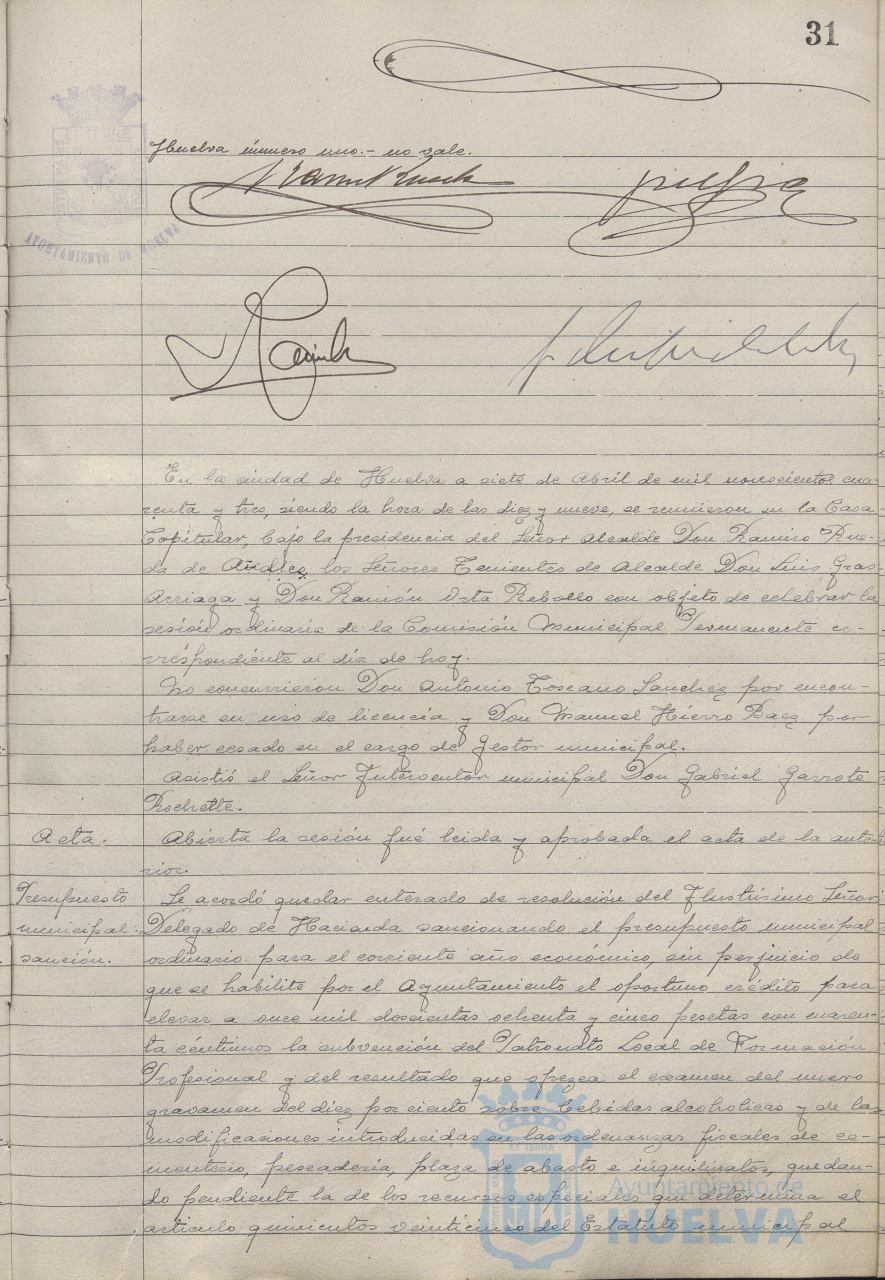 31
Huelva número uno.- no vale.
AYUNTAMIENTO DE HUELVA
En la ciudad de Huelva a siete de Abril de mil novecientos cua-
renta y tres, siendo la hora de las diez y nueve, se reunieron en la Casa
Capitular, bajo la presidencia del Señor Alcalde Don Ramiro Rue-
da de Andíez, los Señores Tenientes de Alcalde Don Luis Gras
Arriaga y Don Ramón Orta Rebollo con objeto de celebrar la
sesión ordinaria de la Comisión Municipal Permanente co-
rrespondiente al día de hoy.
No concurrieron Don Antonio Toscano Sanchez por encon-
trarse en uso de licencia y Don Manuel Hierro Baez por
haber cesado en el cargo de Gestor municipal.
Asistió el Señor Interventor municipal Don Gabriel Garrote
Rochette.
Acta.
Abierta la sesión fué leida y aprobada el acta de la ante-
rior.
Presupuesto
municipal.
sanción.
Se acordó quedar enterado de resolución del Ilustrísimo Señor
Delegado de Hacienda sancionando el presupuesto municipal
ordinario para el corriente año económico, sin perjuicio de
que se habilite por el Ayuntamiento el oportuno crédito para
elevar a once mil doscientas ochenta y cinco pesetas con cuaren-
ta céntimos la subvención del Patronato Local de Formación
Profesional y del resultado que ofrezca el examen del nuevo
gravamen del diez por ciento sobre bebidas alcoholicas y de las
modificaciones introducidas en las ordenanzas fiscales de ce-
menterio, pescadería, plaza de abasto e inquilinatos, quedan-
do pendiente la de los recursos especiales que determina el
artículo quinientos veinticinco del Estatuto municipal
Ayuntamiento de
HUELVA